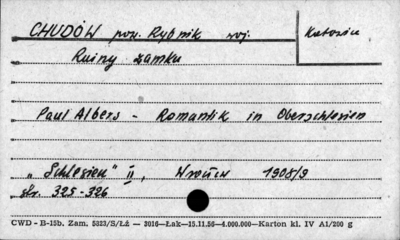 CHUDÓW pow. Rybnik woj. Katowice
Ruiny zamku
Paul Albers - Romantik in Oberschlesien
„Schlesien" II, Wrocław 1908/9
str. 325-326
CWD - B-15b. Zam. 5323/S/Łż — 3016—Łak—15.11.56—4.000.000—Karton kl. IV A1/200 g